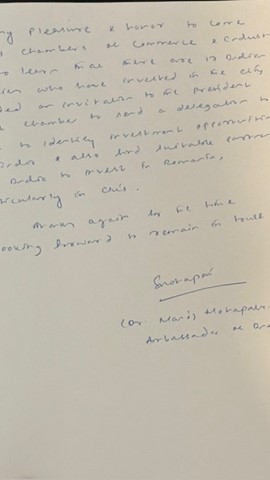 my pleasure & honor to come
chambers of Commerce & Indust
to learn that there are 12 Indian
who have invested in the city
an invitation to the President
chamber to send a delegation to
to identify investment opportunities
& also find suitable partners
India to invest in Romania,
particularly in Cluj.
Thanks again for the time
looking forward to remain in touch
(Dr. Manoj Mohapatr
Ambassador of